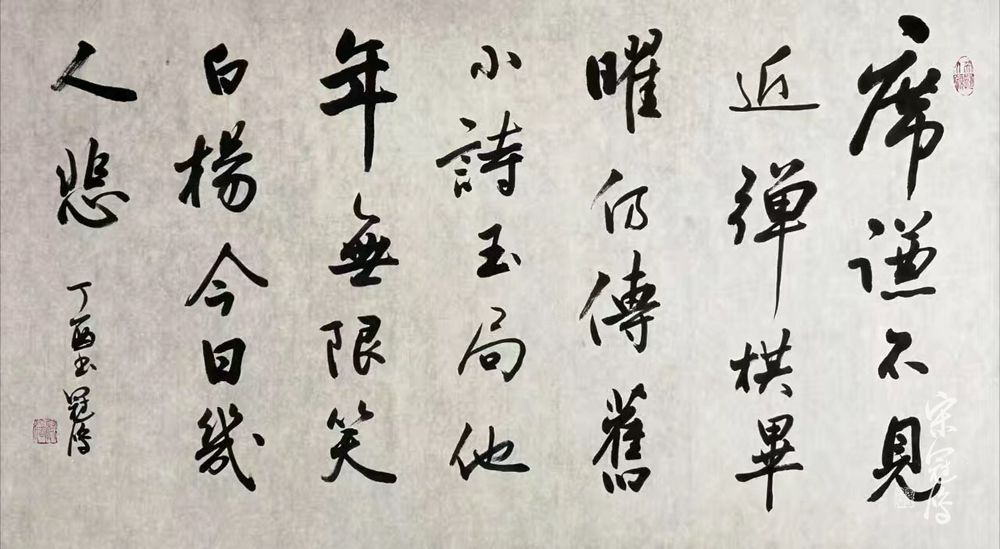 席謙不見
近彈棋畢
曜仍傳舊
小詩玉局他
年無限笑
白楊今日幾
人悲
丁酉書冠
宋冠